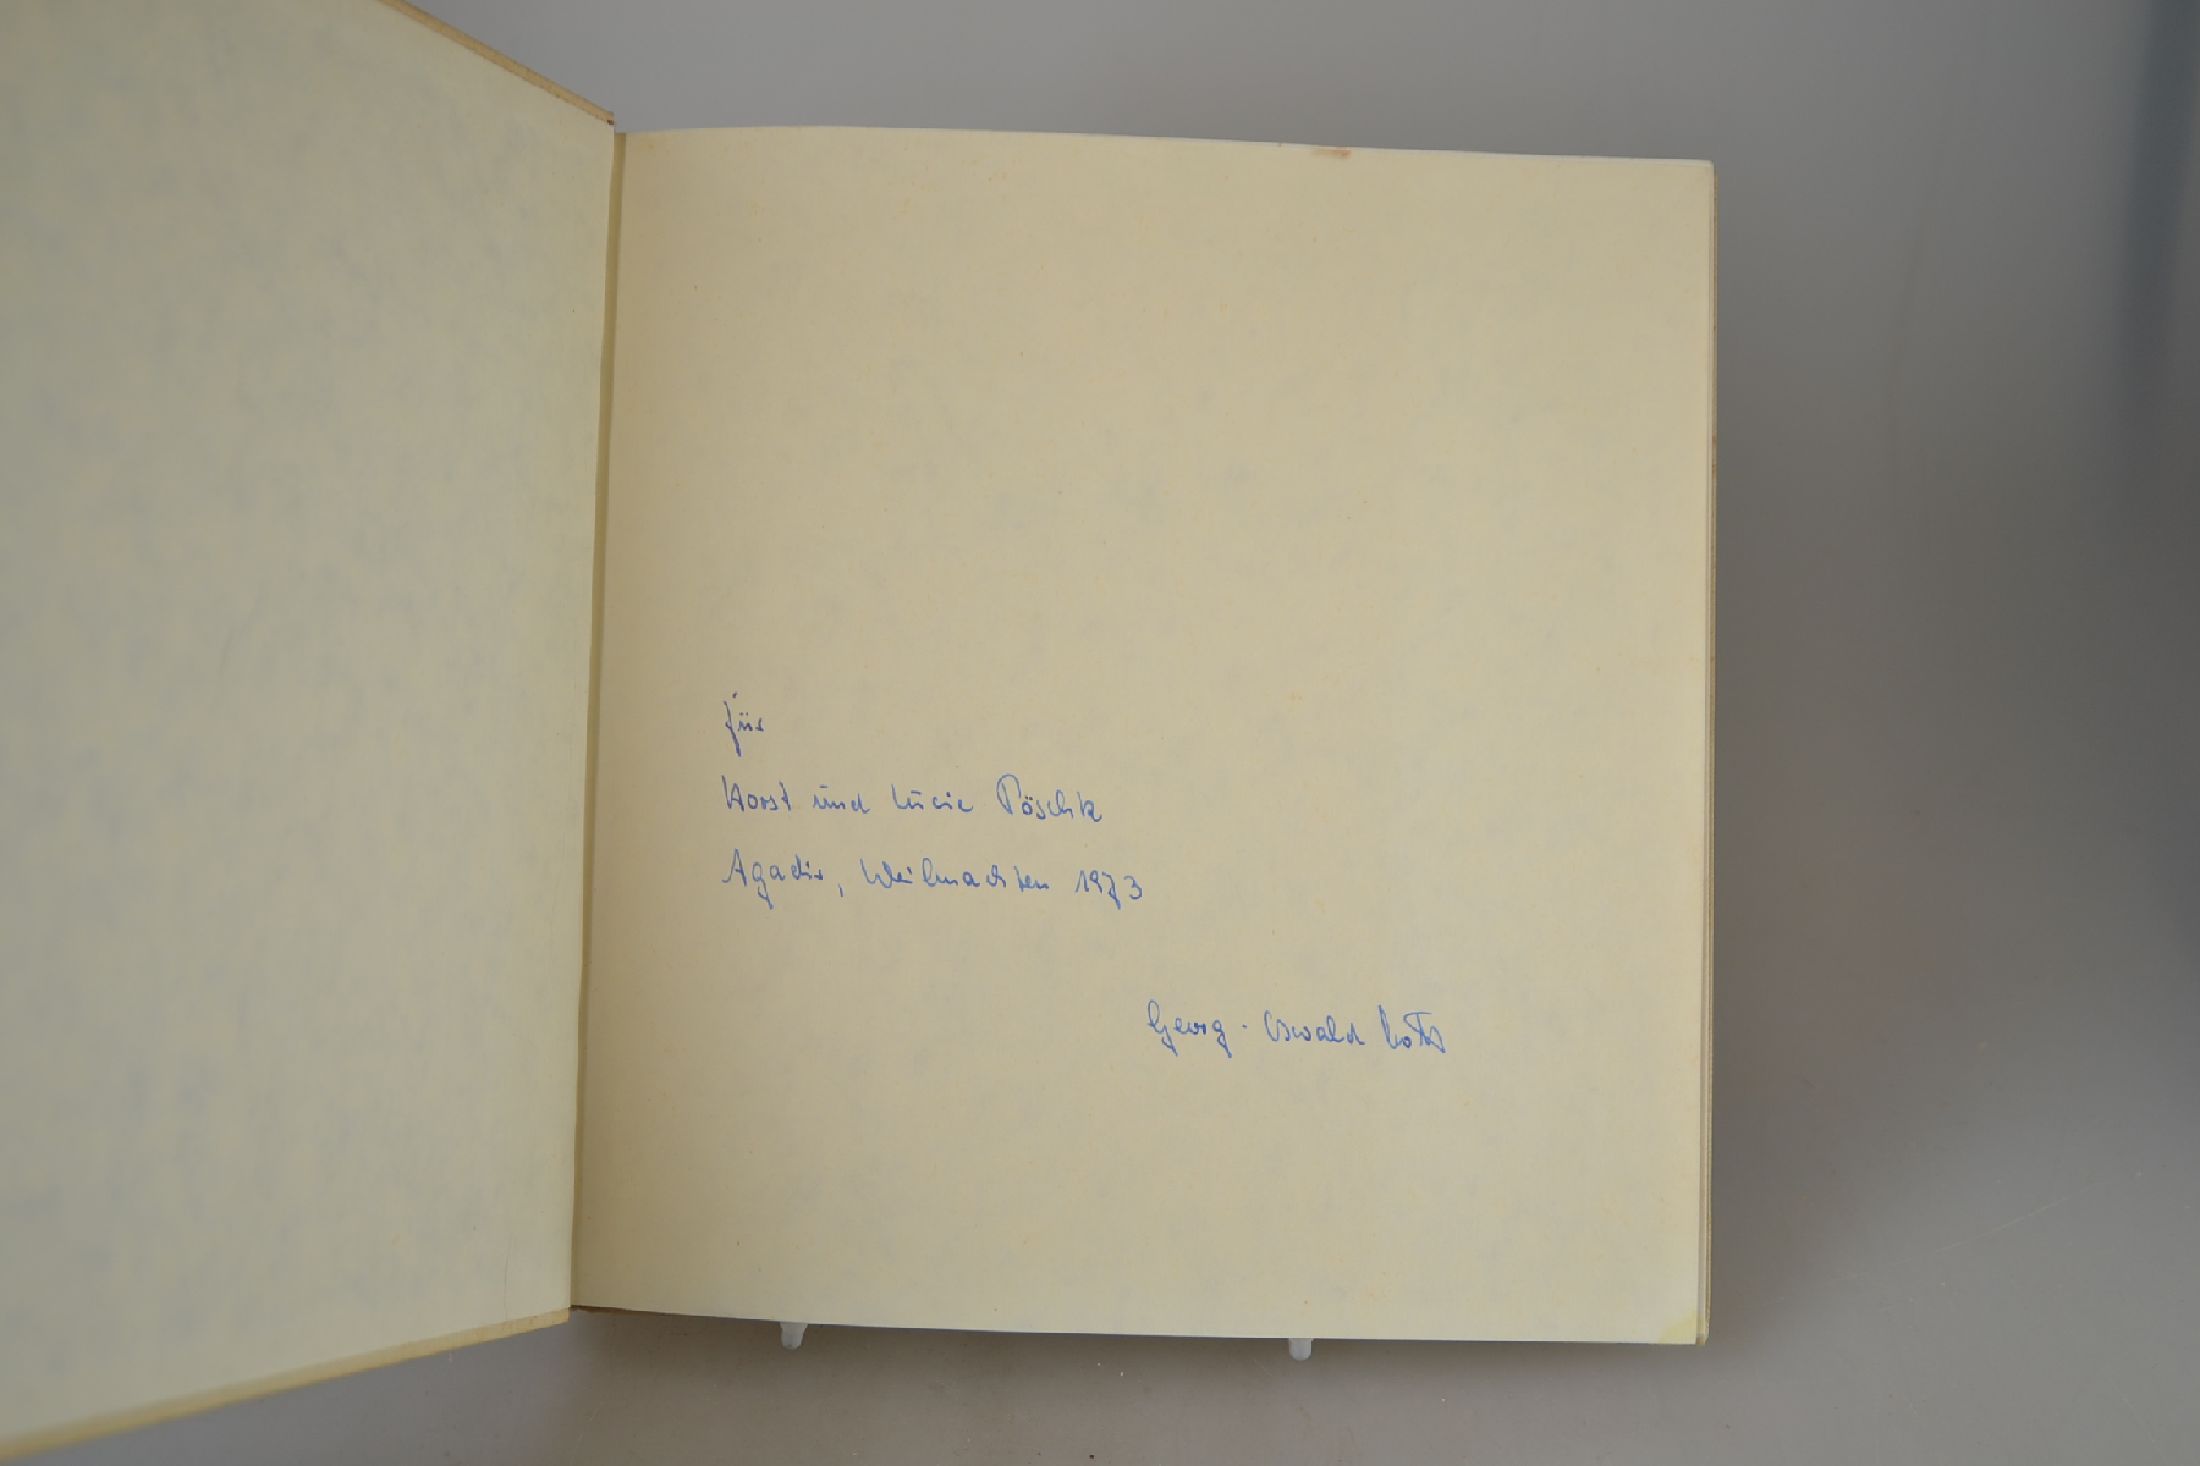 für
Horst und Lucie Pöschk
Agadir, Weihnachten 1973
Georg-Oswald